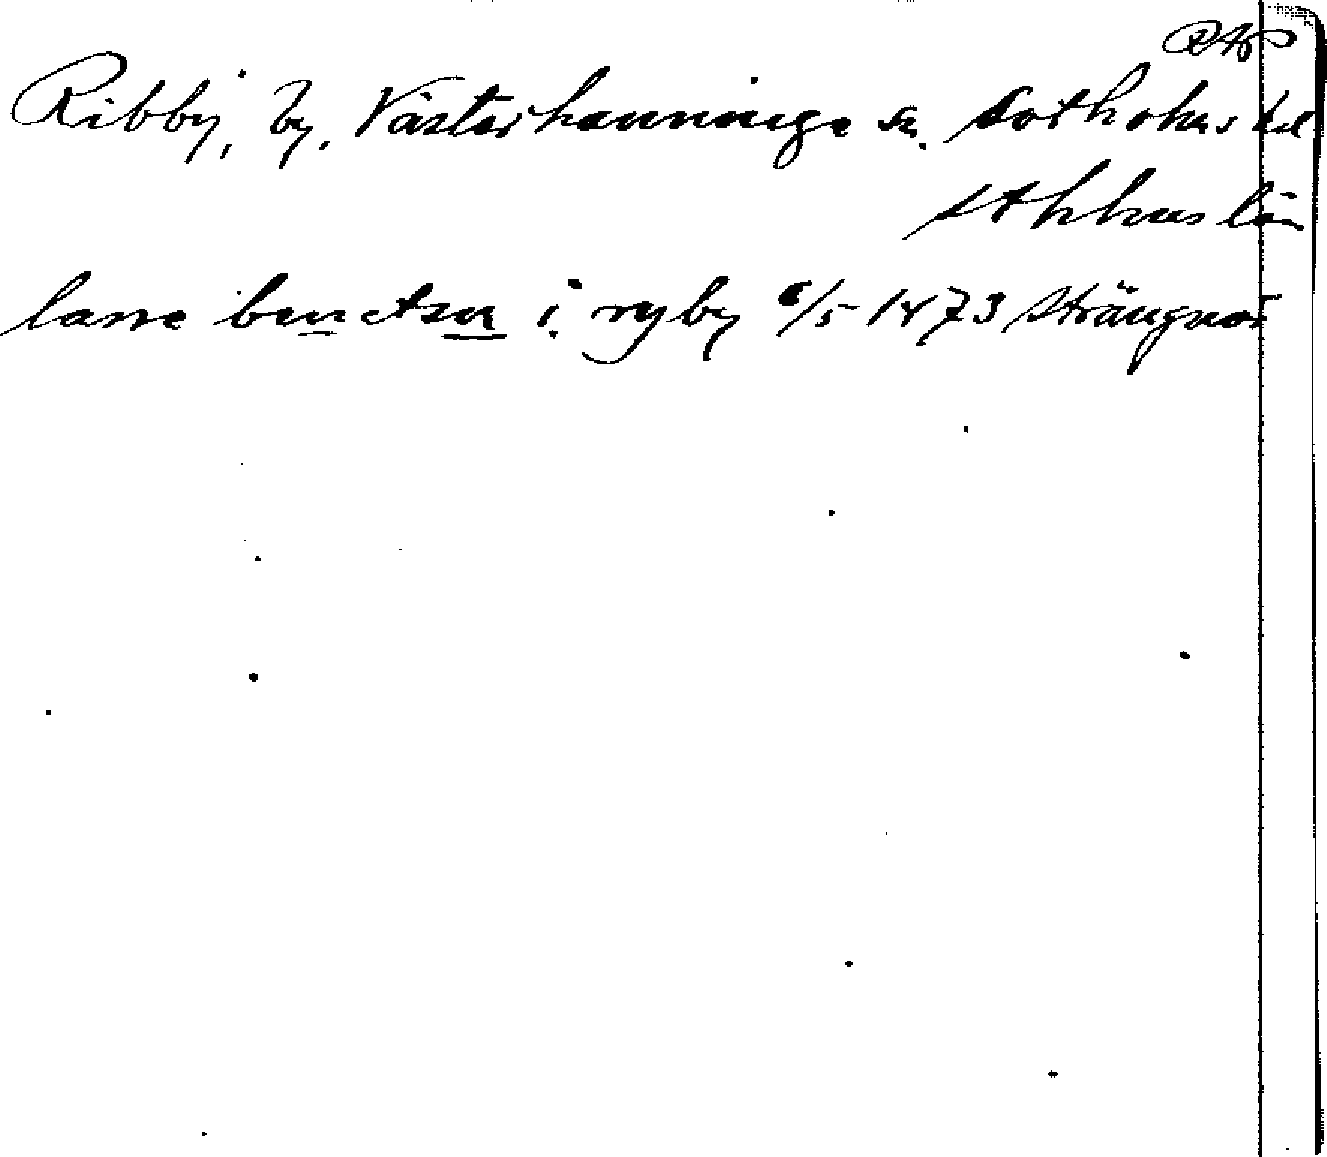 RAp
Ribby, by, Västerhanninge sn. Sotholms hd
Sthlms län
lasse benctson i ryby 6/5 1473 Strängnäs